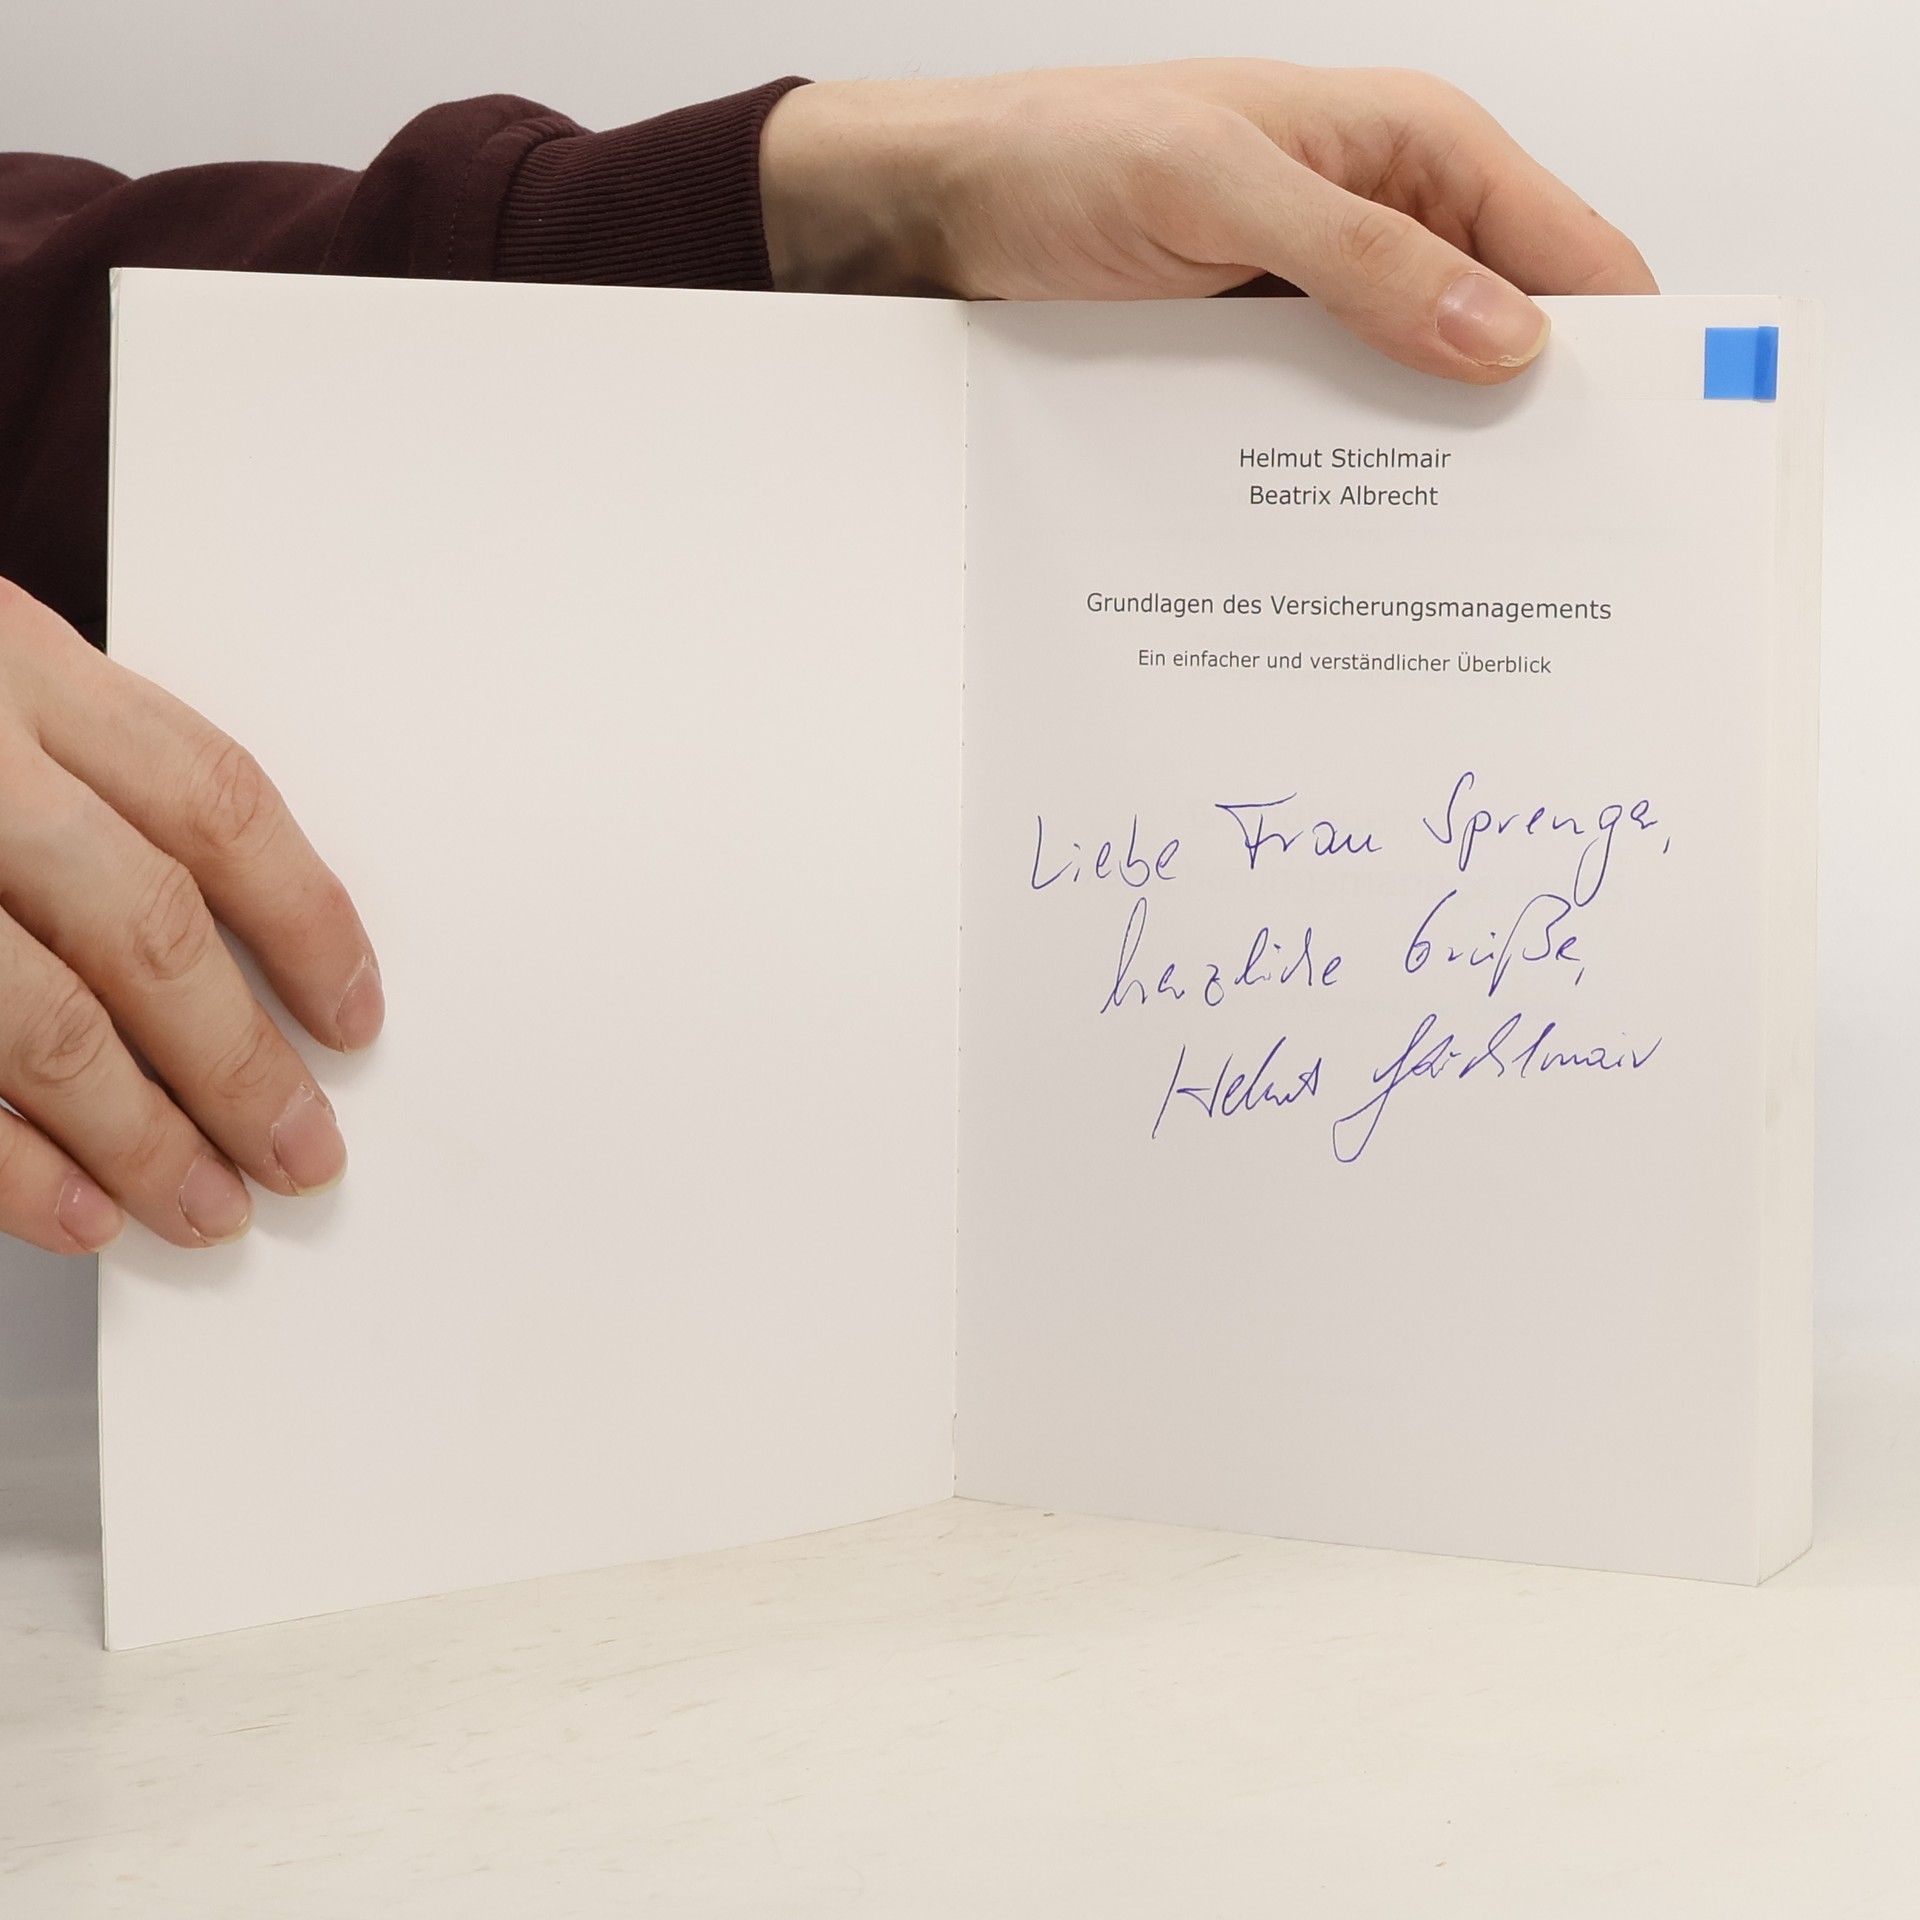 Helmut Stichlmair
Beatrix Albrecht
Grundlagen des Versicherungsmanagements
Ein einfacher und verständlicher Überblick
Liebe Frau Sprenger,
herzliche Grüße,
Helmut Stichlmair